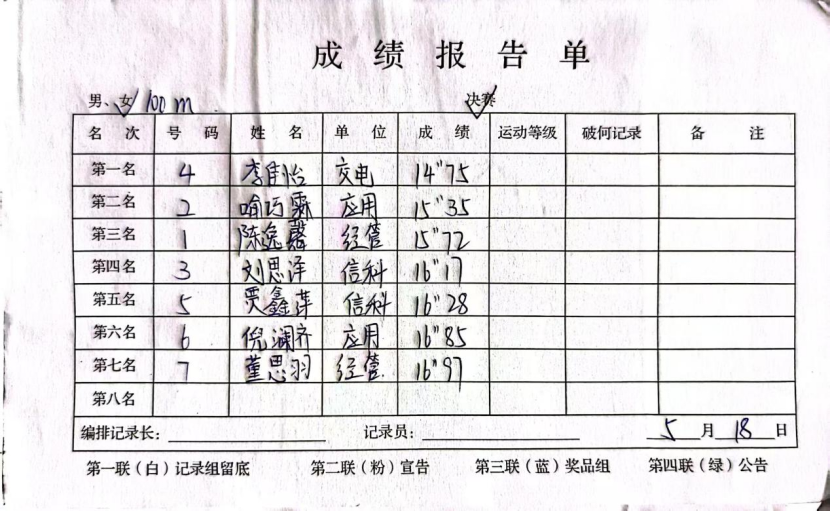 成绩报告单
男、女 100m 决赛
名次 号码 姓名 单位 成绩 运动等级 破何记录 备注
第一名 4 李月怡 交电 14"75
第二名 2 喻巧霖 应用 15"35
第三名 1 陈逸馨 经管 15"72
第四名 3 刘思泽 信科 16"17
第五名 5 贾鑫萍 信科 16"28
第六名 6 倪澜齐 应用 16"85
第七名 7 董思羽 经管 16"97
第八名
编排记录长: 记录员: 5月18日
第一联(白)记录组留底 第二联(粉)宣告 第三联(蓝)奖品组 第四联(绿)公告